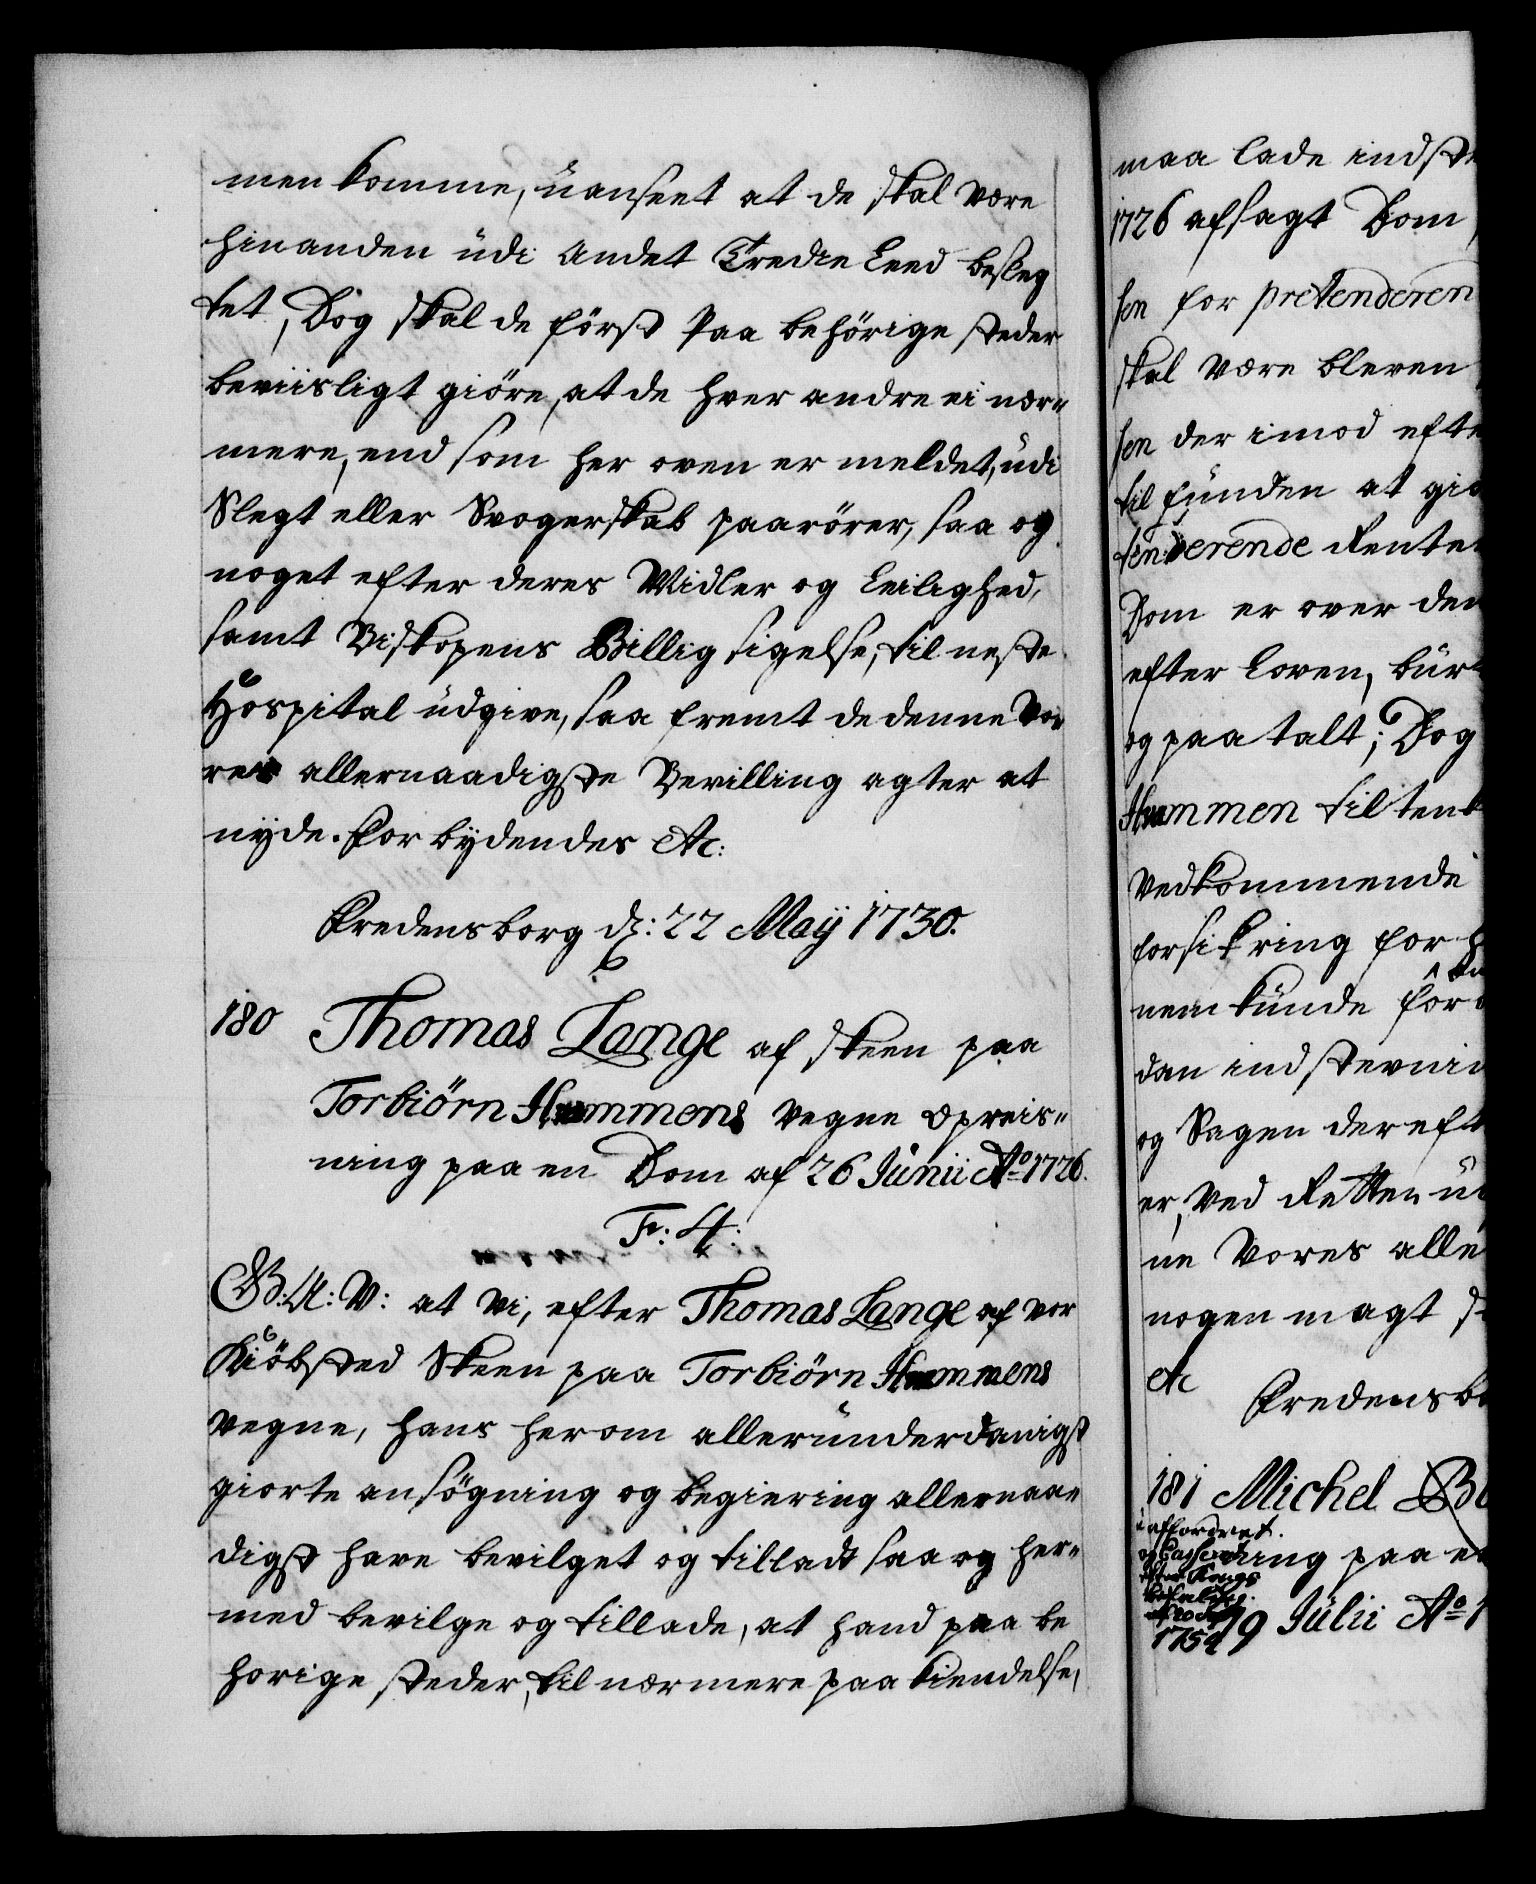 men komme, uanseet at de skal være
hinanden udi andet Tredie Leed besleg
tet, Dog skal de först paa behörige steder
beviisligt giöre, at de hver andre ei nær„
mere, end som her oven er meldet, udi
Slegt eller Svogerskab paarörer, saa og
noget efter deres Midler og Leilighed,
samt Biskopens Billig sigelse, til neste
Hospital udgive, saa fremt de denne Vo„
res allernaadigste Bevilling agter at
nyde. Forbydendes etc:
Fredensborg d: 22 Maij 1730.
180 Thomas Lange af Skeen paa
Torbiörn Hummens vegne opreis„
ning paa en Dom af 26 Junii Ao 1726.
Fr: 4:
G: A: V: at Vi, efter Thomas Lange af vor
Kiöbsted Skeen paa Torbiörn Hummens
vegne, hans herom allerunderdanigst
giorte ansögning og begiering allernaa„
digst have bevilget og tilladt saa og her„
med bevilge og tillade, at hand paa be
horige steder, til nærmere paa kiendelse,
maa lade indste
1726 afsagt Dom,
sen for pretenderen
skal være bleven
sen der imod efte
til funden at gio
tenderende Rente
Dom er over den
efter Loven, bur
og paa talt; Dog
Hummen til tenk
Vedkommende
forsikring for h
nem kunde for
dan indstevni
og Sagen der eft
er, ved Retten u
ne Vores alle
nogen magt s
etc
Fredensb
181 Michel B
uaffordret.
og Casseret
efter Kongs
befaling
af 20
1754
ning paa e
19 Julii Ao 1